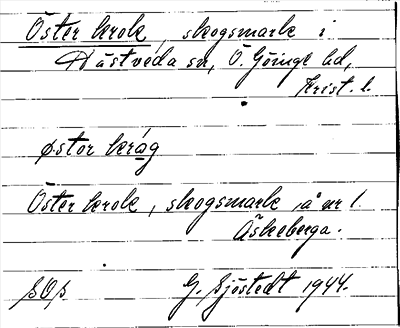 Österkrok, skogsmark i
Hästveda sn, Ö. Göinge hd,
Krist. l.
østor kråg
Österkrok, skogsmark å nr 1.
Äskeberga.
G. Sjöstedt 1944.